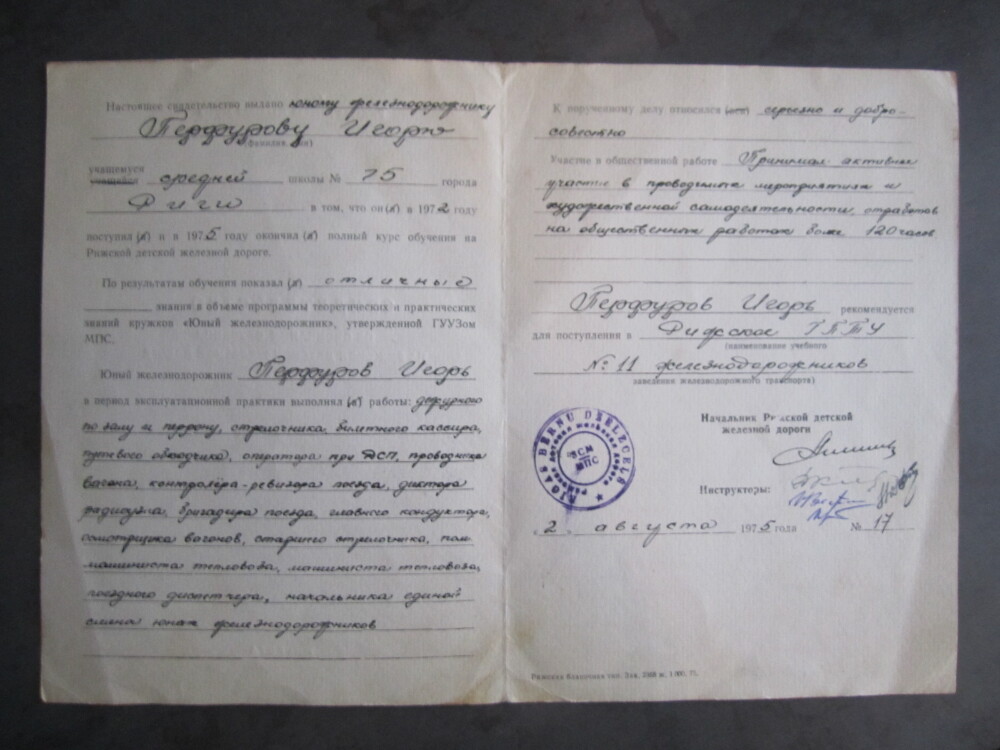 Настоящее свидетельство выдано юному железнодорожнику
Перфурову Игорю
(фамилия, имя)
учащемуся
учащейся средней школы № 75 города
Риги в том, что он (а) в 1972 году
поступил (а) и в 1975 году окончил (а) полный курс обучения на
Рижской детской железной дороге.
По результатам обучения показал (а) отличные
знания в объеме программы теоретических и практических
знаний кружков «Юный железнодорожник», утвержденной ГУУЗом
МПС.
Юный железнодорожник Перфуров Игорь
в период эксплуатационной практики выполнял (а) работы: дежурного
по залу и перрону, стрелочника, билетного кассира,
путевого обходчика, оператора при ДСП, проводника
вагона, контролёра-ревизора поезда, диктора
радиоузла, бригадира поезда, главного кондуктора,
осмотрщика вагонов, старшего стрелочника, пом.
машиниста тепловоза, машиниста тепловоза,
поездного диспетчера, начальника единой
смены юных железнодорожников
К порученному делу относился (ась) серьезно и добро-
совестно
Участие в общественной работе Принимал активное
участие в проводимых мероприятиях и
художественной самодеятельности, отработав
на общественных работах более 120 часов
Перфуров Игорь рекомендуется
для поступления в Рижское ГПТУ
(наименование учебного
№ 11 железнодорожников
заведения железнодорожного транспорта)
Начальник Рижской детской
железной дороги
RĪGAS BĒRNU DZELZCEĻŠ
Рижская детская железная дорога
МПС
Инструкторы:
„2 августа 1975 года № 17
Рижская бланочная тип. Зак.